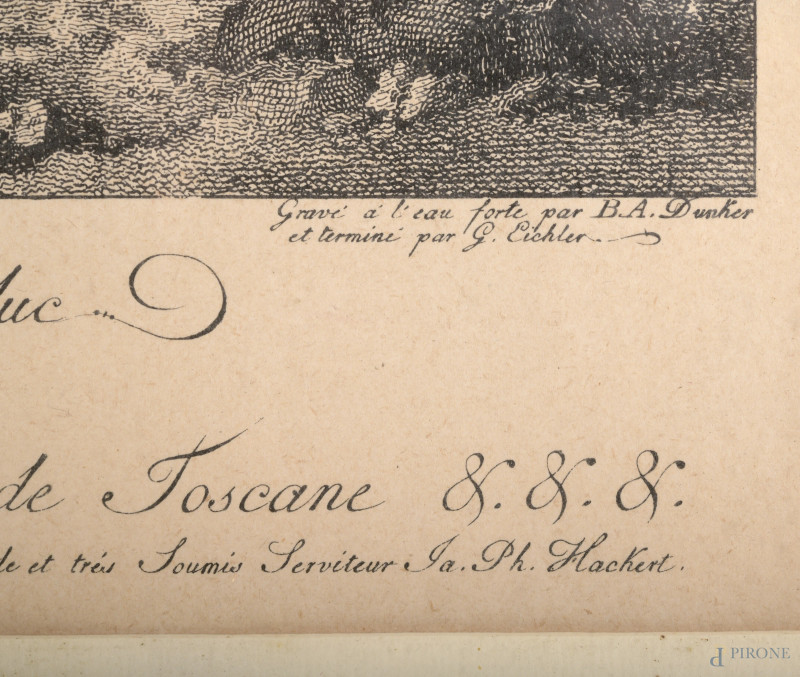 Gravé á l'eau forte par B.A. Dunker
et terminé par G. Eichler.
duc
de Toscane &. &. &.
le et trés Soumis Serviteur Ja. Ph. Hackert.
PIRONE